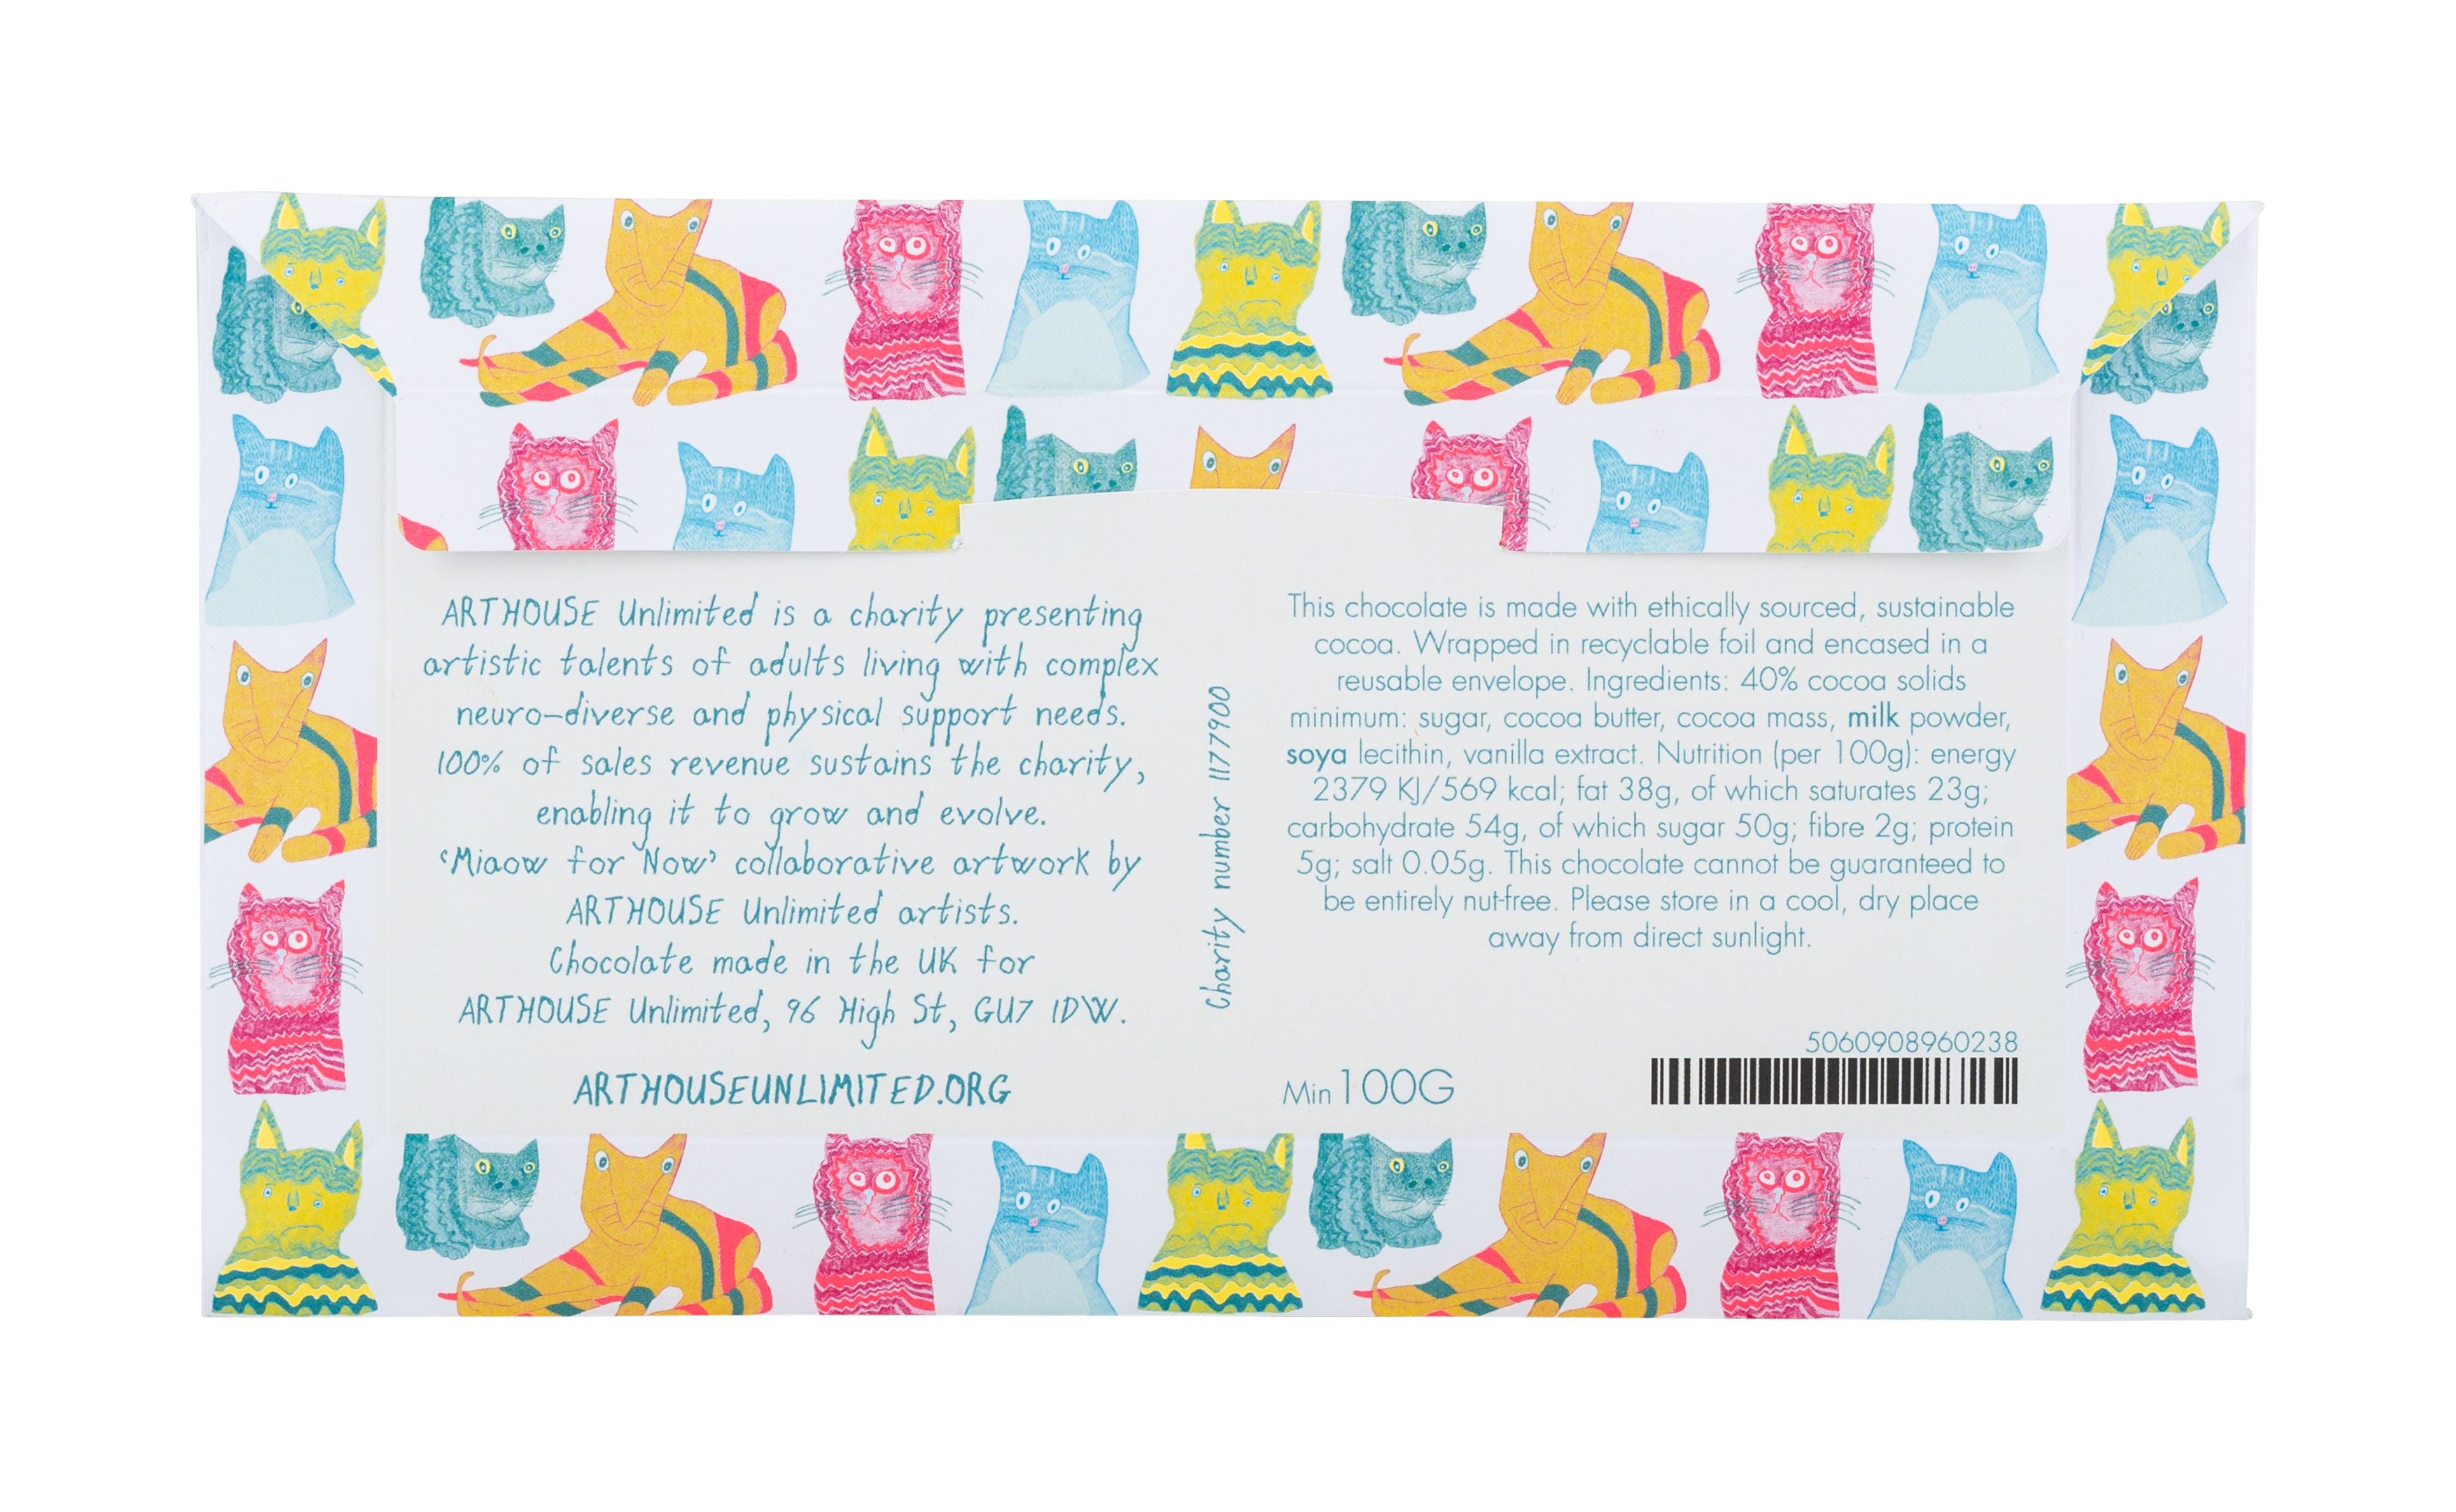 ARTHOUSE Unlimited is a charity presenting
artistic talents of adults living with complex
neuro-diverse and physical support needs.
100% of sales revenue sustains the charity,
enabling it to grow and evolve.
‘Miaow for Now’ collaborative artwork by
ARTHOUSE Unlimited artists.
Chocolate made in the UK for
ARTHOUSE Unlimited, 96 High St, GU7 1DW.
ARTHOUSEUNLIMITED.ORG
Charity number 1177900
This chocolate is made with ethically sourced, sustainable
cocoa. Wrapped in recyclable foil and encased in a
reusable envelope. Ingredients: 40% cocoa solids
minimum: sugar, cocoa butter, cocoa mass, milk powder,
soya lecithin, vanilla extract. Nutrition (per 100g): energy
2379 KJ/569 kcal; fat 38g, of which saturates 23g;
carbohydrate 54g, of which sugar 50g; fibre 2g; protein
5g; salt 0.05g. This chocolate cannot be guaranteed to
be entirely nut-free. Please store in a cool, dry place
away from direct sunlight.
Min 100G
5060908960238